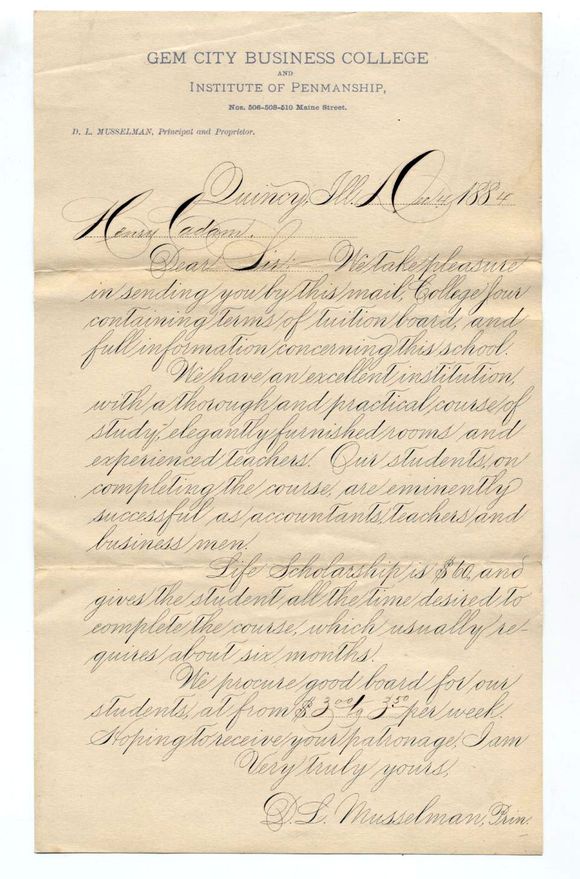 GEM CITY BUSINESS COLLEGE
AND
INSTITUTE OF PENMANSHIP,
Nos. 506-508-510 Maine Street.
D. L. MUSSELMAN, Principal and Proprietor.
Quincy, Ill. 1884
Henry Eadam.
Dear Sir: We take pleasure
in sending you by this mail, College Jour
containing terms of tuition board, and
full information concerning this school.
We have an excellent institution,
with a thorough and practical course of
study, elegantly furnished rooms and
experienced teachers. Our students, on
completing the course, are eminently
successful as accountants, teachers and
business men.
Life Scholarship is $60, and
gives the student all the time desired to
complete the course, which usually re-
quires about six months.
We procure good board for our
students, at from $3.00 to 3.50 per week.
Hoping to receive your patronage, I am
Very truly yours,
D. L. Musselman, Prin.